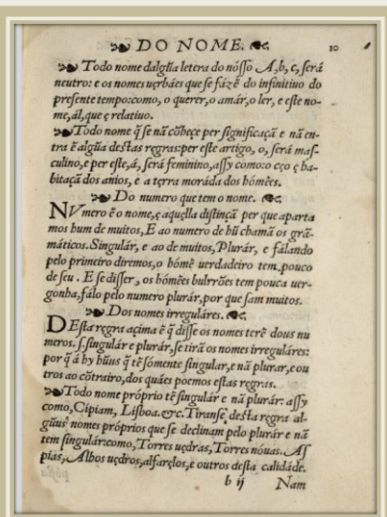 DO NOME.
10
Todo nome dalgũa letera do nósso A, b, c, será
neutro: e os nomes uęrbáes que se fázẽ do infinitiuo do
presente tempo: como, o querer, o amár, o ler, e este no-
me, ál, que ę relatiuo.
Todo nome q̃ se nã cõheçe per significaçã e nã en-
tra ẽ algũa destas regras: per este artigo, o, será mas-
culino, e per este, á, será feminino, assy como: o çeo ę ha-
bitaçã dos anios, e a tęrra moráda dos hómẽes.
Do numero que tem o nome.
NVmero ẽ o nome, ę aquęlla distinçã per que aparta
mos hum de muitos, E ao numero de hũ chamã os grã-
máticos. Singulár, e ao de muitos, Plurár, e fálando
pelo primeiro diremos, o hómẽ uerdadeiro tem pouco
de seu. E se disser, os hómẽes bulrrões tem pouca uer-
gonha, fálo pelo numero plurár, por que sam muitos.
Dos nomes irreguláres.
DEsta regra açima ẽ q̃ disse os nomes terẽ dous nu
meros. s. singulár e plurár, se tirã os nomes irreguláres:
por q̃ á hy hũus q̃ tẽ sómente singular, e nã plurar, e ou
tros ao cõtrairo, dos quáes poemos estas regras.
Todo nome próprio tẽ singulár e nã plurár: assy
como, Cipiam, Lisboa. &c. Tiranse desta regra al-
gũus nomes próprios que se declinam pelo plurár e nã
tem singulár: como, Torres uędras, Torres nóuas. As
pias, Alhos uędros, alfarçlos, e outros desta calidáde.
b ij Nam